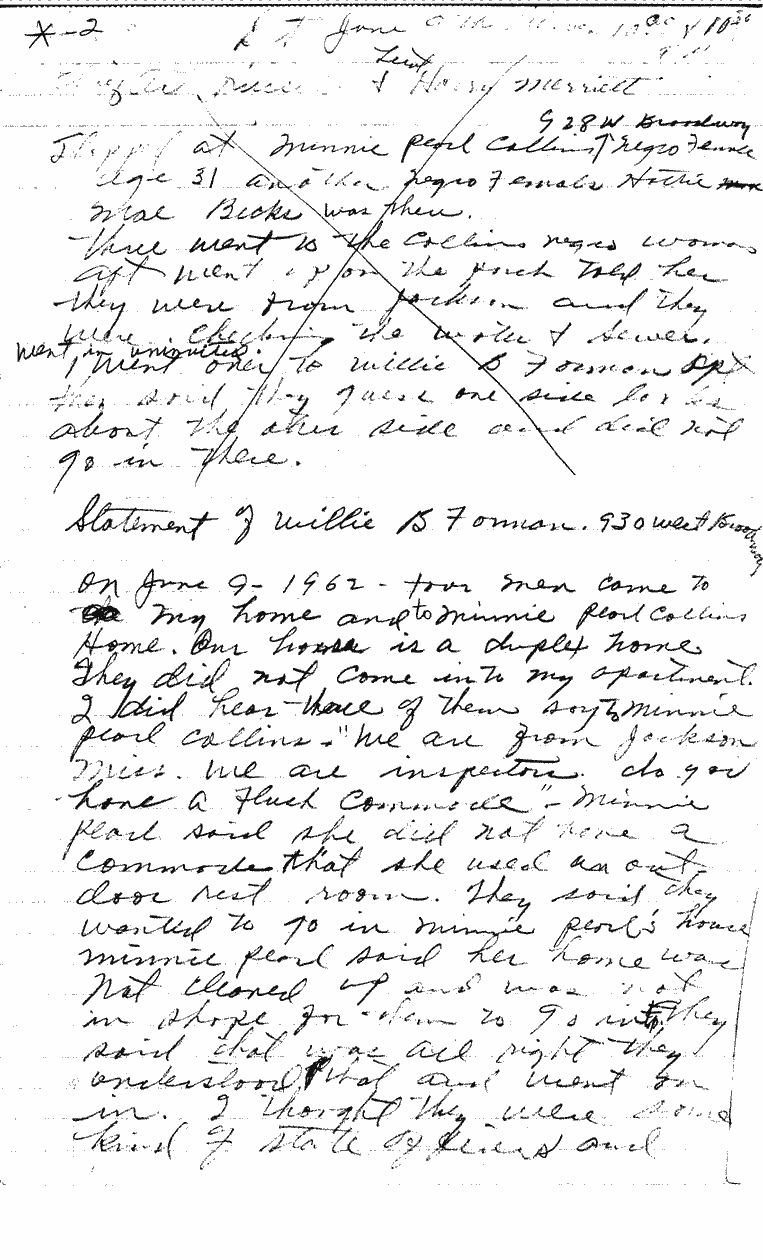 *-2
June 9th 10 00 & 10 30
Lieut
& Harry Merritt
928 W Broadway
at Minnie pearl Collins negro Female
age 31 another negro Female Hattie
Mae Becks was there.
three went to the Collins negro woman
apt went up on the porch told her
they were from Jackson and they
were checking the water & sewer.
went in uninvited.
went over to Willie B Forman apt
then said they guess one side
about the other side and did not
go in there.
Statement of Willie B Forman. 930 West Broadway
On June 9 - 1962 - four men come to
my home and to Minnie pearl Collins
Home. Our house is a duplex home
They did not come into my apartment.
I did hear three of them say to Minnie
pearl Collins - "We are from Jackson
Miss. We are inspectors. do you
have a Flush Commode" - Minnie
pearl said she did not have a
Commode that she used an out
door rest room. They said they
wanted to go in Minnie pearl's house
Minnie pearl said her home was
not cleaned up and was not
in shape for them to go into. They
said that was all right they
understood that and went on
in. I thought they were some
kind of state officers and